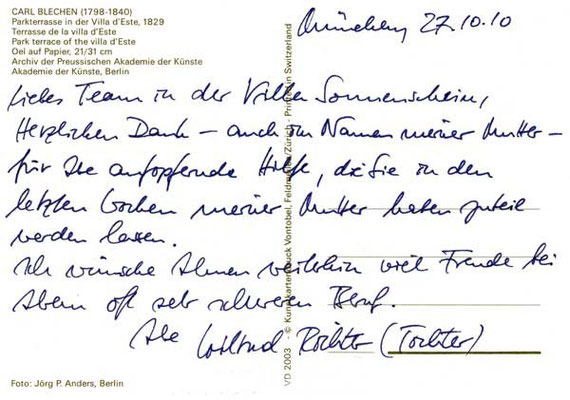 CARL BLECHEN (1798-1840)
Parkterrasse in der Villa d'Este, 1829
Terrasse de la villa d'Este
Park terrace of the villa d'Este
Oel auf Papier, 21/31 cm
Archiv der Preussischen Akademie der Künste
Akademie der Künste, Berlin
München 27.10.10
Liebes Team in der Villa Sonnenschein,
Herzlichen Dank – auch im Namen meiner Mutter –
für Ihre aufopfernde Hilfe, die Sie in den
letzten Wochen meiner Mutter haben zuteil
werden lassen.
Ich wünsche Ihnen weiterhin viel Freude bei
Ihrem oft sehr schweren Beruf.
Ihre Richter (Tochter)
VD 2003 - © Kunstkarten Druck Vontobel, /Zürich - Printed in Switzerland
Foto: Jörg P. Anders, Berlin